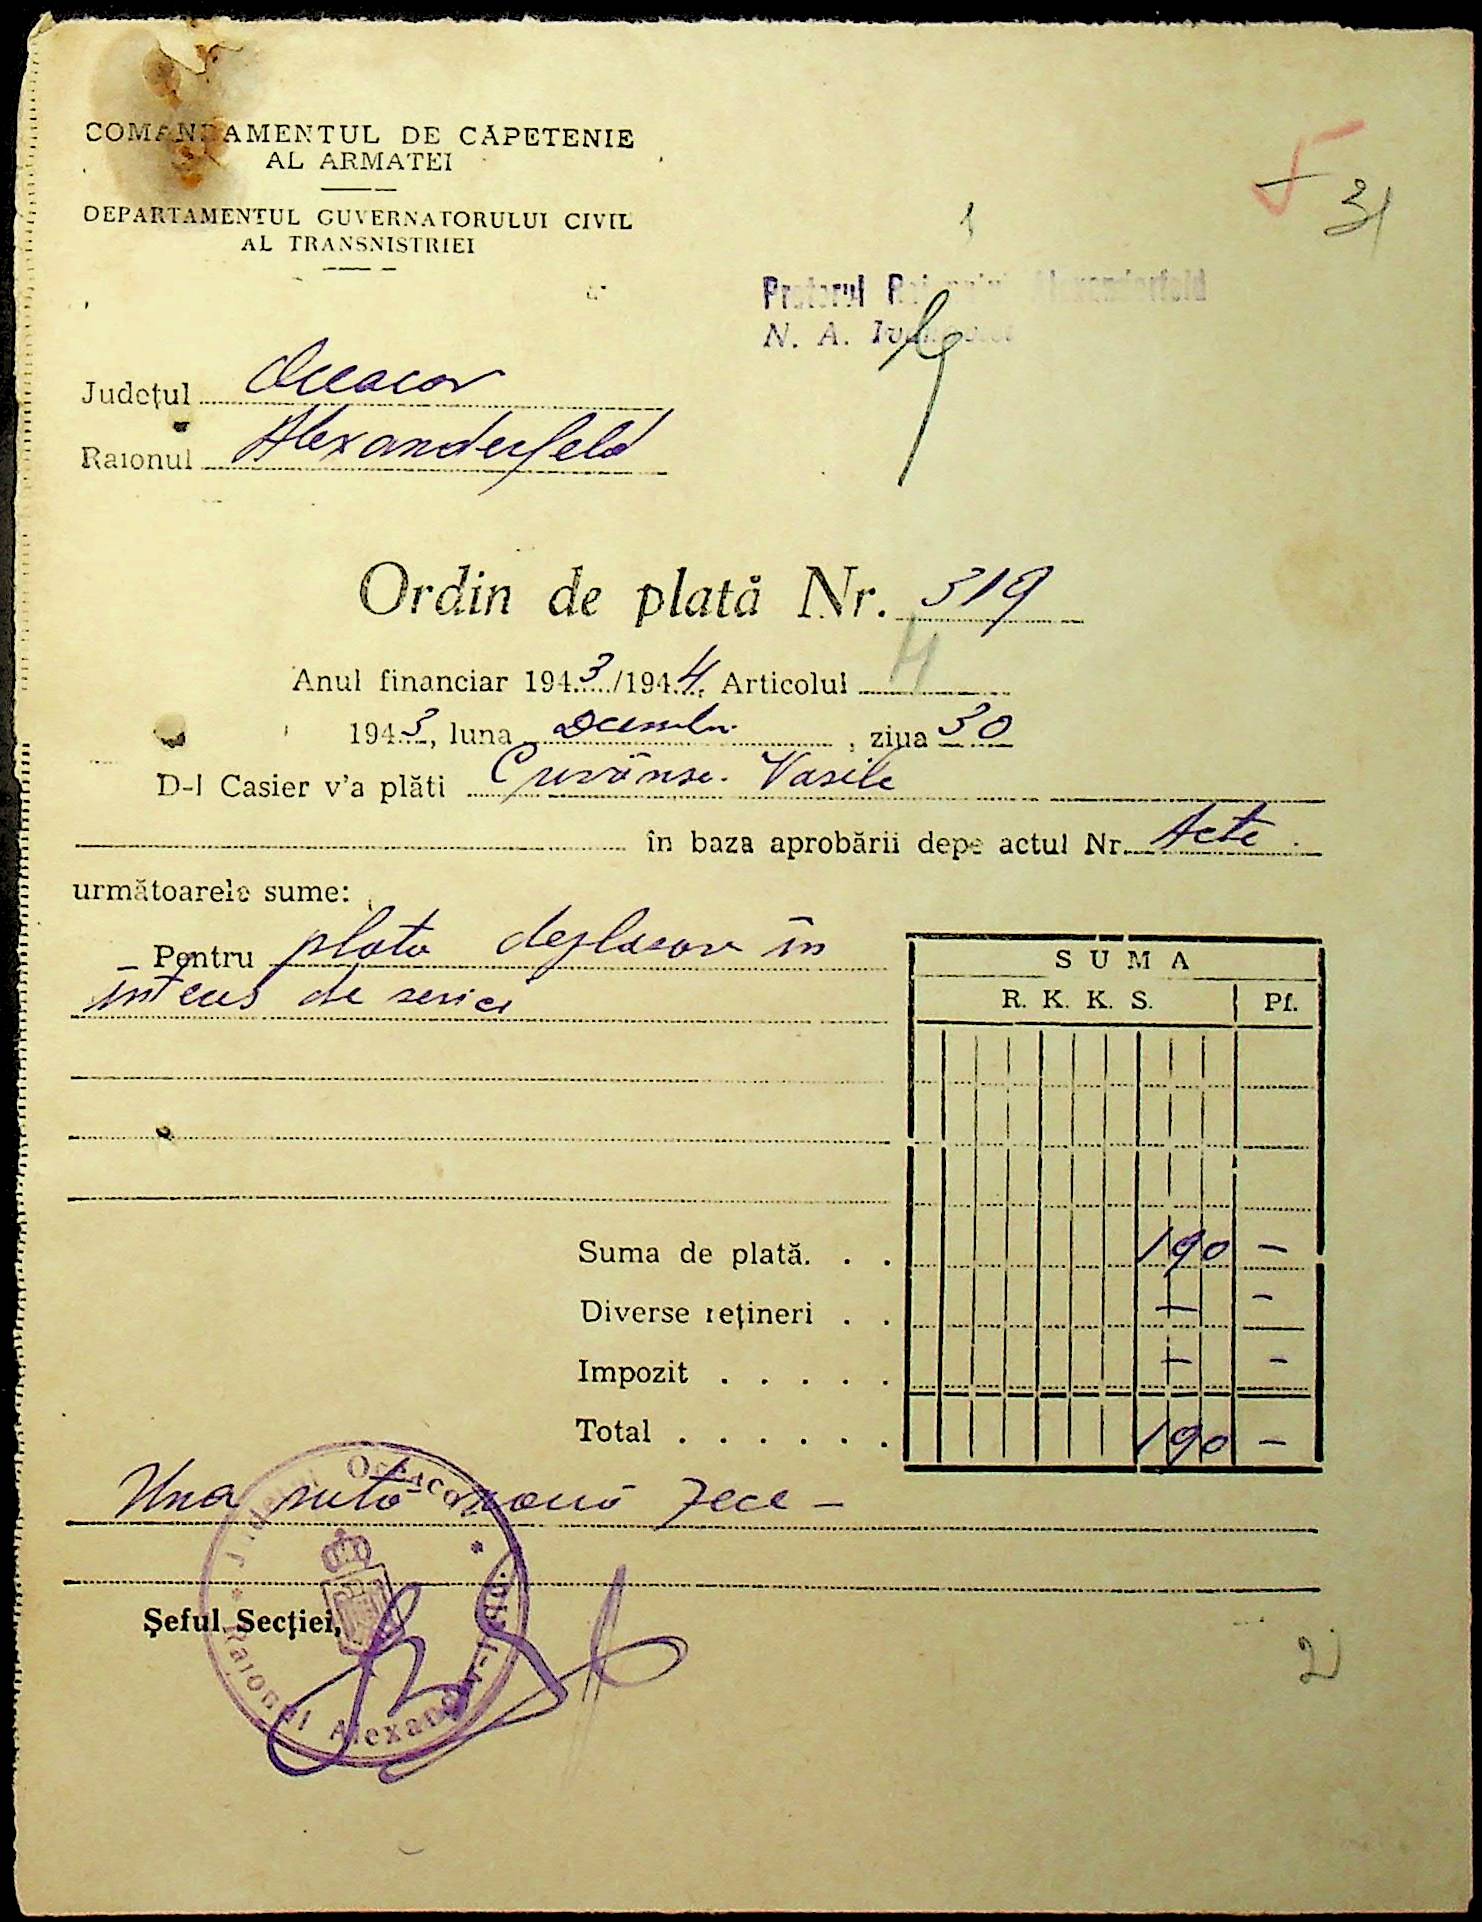 COMANDAMENTUL DE CAPETENIE
AL ARMATEI
DEPARTAMENTUL GUVERNATORULUI CIVIL
AL TRANSNISTRIEI
31
Pretorul Raionului Alexanderfeld
N. A.
Județul Oceacov
Raionul Alexanderfeld
Ordin de plată Nr. 319
Anul financiar 1943/1944. Articolul 4
1943, luna Decembrie, ziua 30
D-l Casier v'a plăti Vasile
în baza aprobării depe actul Nr. Acte
următoarele sume:
Pentru plata deplasare în
interes de servici
SUMA
R. K. K. S. Pf.
Suma de plată. . . 190 —
Diverse rețineri . . — —
Impozit . . . . . — —
Total . . . . . . 190 —
Una sută nouă zece —
Șeful Secției,
Județul Oceacov * Raionul Alexander-Feld *
2